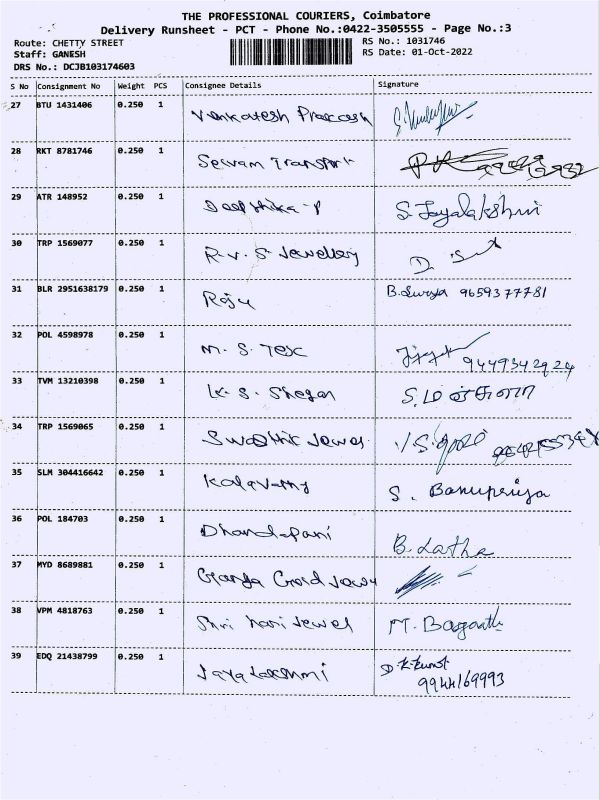 THE PROFESSIONAL COURIERS, Coimbatore
Delivery Runsheet - PCT - Phone No.:0422-3505555 - Page No.:3
Route: CHETTY STREET
RS No.: 1031746
Staff: GANESH
RS Date: 01-Oct-2022
DRS No.: DCJB103174603
S No Consignment No Weight PCS Consignee Details Signature
27 BTU 1431406 0.250 1 Venkatesh Prakash
28 RKT 8781746 0.250 1 Selvam Transport
29 ATR 148952 0.250 1 Deepthika-P S. Jayalakshmi
30 TRP 1569077 0.250 1 R.V.S. Jewellery D.
31 BLR 2951638179 0.250 1 Raju B.Surya 9659377781
32 POL 4598978 0.250 1 M.S. Tex 9449342924
33 TVM 13210398 0.250 1 K.S. Shegar S.
34 TRP 1569065 0.250 1 Swasthik Jewel
35 SLM 304416642 0.250 1 Kalavathy S. Banupriya
36 POL 184703 0.250 1 Dhandapani B. Latha
37 MYD 8689881 0.250 1 Ganga Gold Jewe
38 VPM 4818763 0.250 1 Shri Hari Jewel M.
39 EDQ 21438799 0.250 1 Jayalakshmi D.K.
9944169993